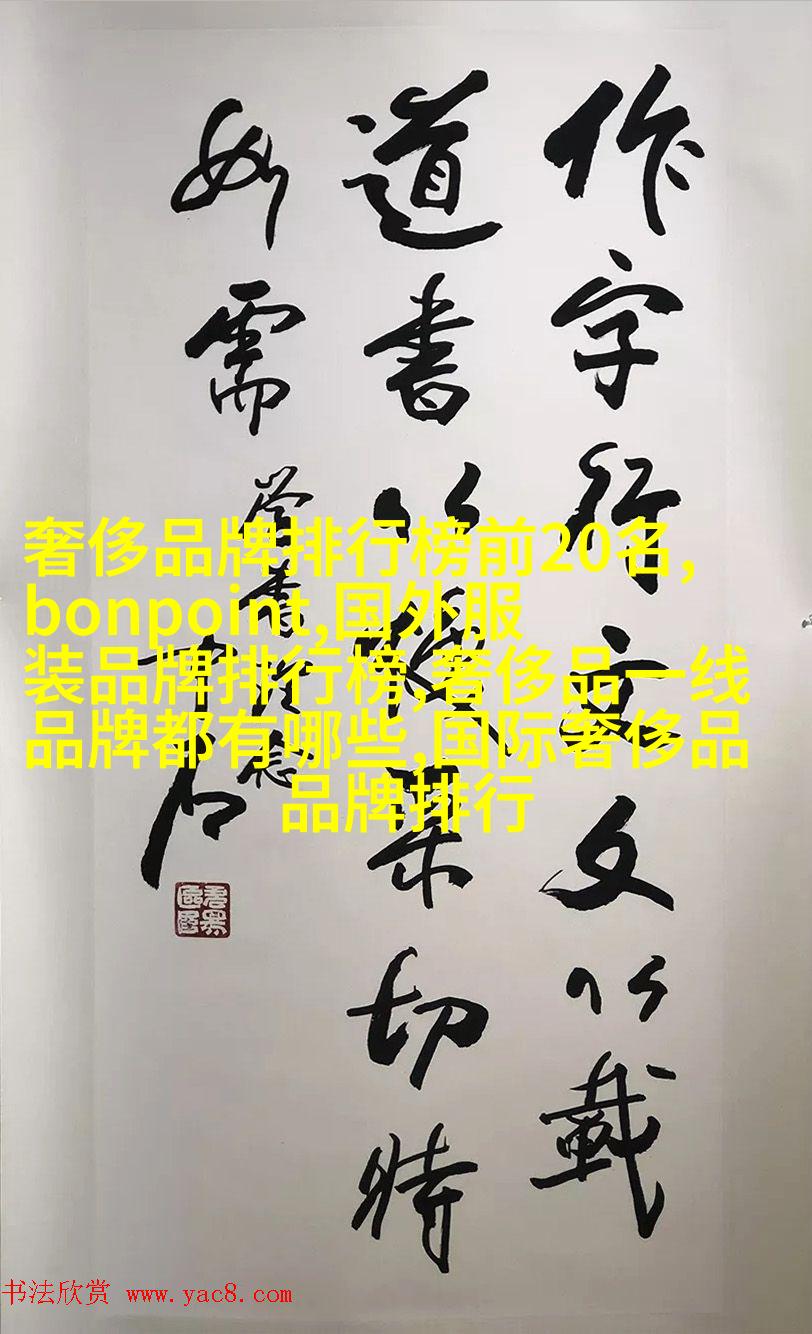 作字行文文以載
道書以焕采切時
如需
中石
奢侈品牌排行榜前20名,
bonpoint,国外服
装品牌排行榜,奢侈品一线
品牌都有哪些,国际奢侈品
品牌排行
书法欣赏 www.yac8.com